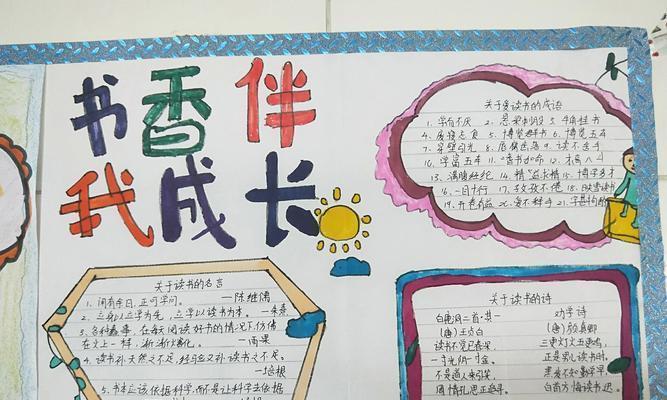 书香伴
我成长
关于爱读书的成语
1. 学有不厌 2. 悬梁刺股 3. 牛角挂书
4. 废寝忘食 5. 博览群书 6. 博览五车
7. 凿壁偷光 8. 囊萤 9. 读不舍手
10. 学富五车 11. 嗜书如命 12.
13. 满腹经纶 14. 精益求精 15. 博学多才
16. 一目十行 17. 孜孜不倦 18. 映雪读书
19. 开卷有益 20. 爱不释手 21.
关于读书的名言
1. 闲有余日,正可学问。 —陈继儒
2. 立身以立学为先,立学以读书为本。 —朱熹
3. 各种蠢事,在每天阅读好书的情况下,仿佛
在火上一样,渐渐熔化。 —雨果
4. 读书补天然之不足,经验又补读书之不足。
—培根
5. 书本应该依据科学,而不是让科学去依据
关于读书的诗
白鹿洞二首·其一
(唐)王贞白
读书不觉已春深,
一寸光阴一寸金。
不是道人来引笑,
周情孔思正追寻。
劝学诗
(唐)颜真卿
三更灯火五更鸡,
正是男儿读书时。
黑发不知勤学早,
白首方悔读书迟。